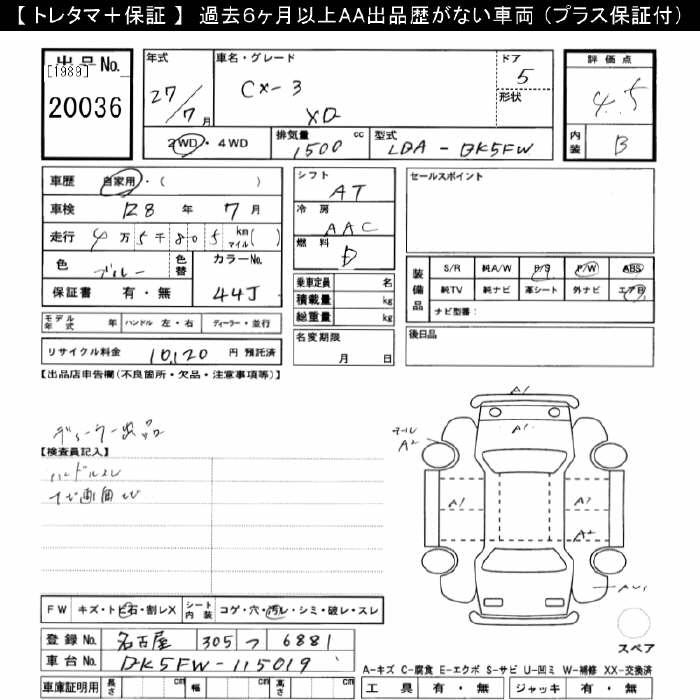 【 トレタマ＋保証 】 過去６ヶ月以上ＡＡ出品歴がない車両（プラス保証付）
出品No.
[1989]
20036
年式
27/7月
車名・グレード
CX-3
XD
ドア
5
形状
評価点
4.5
内装
B
2WD・4WD
排気量 1500 cc
型式 LDA-DK5FW
車歴 自家用・( )
車検 R8 年 7 月
走行 4万5千805 km マイル( )
色 ブルー 色替
カラーNo. 44J
保証書 有・無
モデル年式 年 ハンドル 左・右 ディーラー・並行
リサイクル料金 10,120 円 預託済
シフト AT
冷房 AAC
燃料 D
乗車定員 名
積載量 kg
総重量 kg
名変期限
月 日
セールスポイント
装備品
S/R 純A/W P/S P/W ABS
純TV 純ナビ 革シート 外ナビ エアB
ナビ型番：
後日品
【出品店申告欄(不良箇所・欠品・注意事項等)】
ディーラー
【検査員記入】
ハンドルスレ
ナビ画面
A1
A1
A2
A1
A1
A2
スペア
FW キズ・トビ石・割レX
シート内装 コゲ・穴・汚レ・シミ・破レ・スレ
登録No. 名古屋 305 つ 6881
車台No. DK5FW-115019
車庫証明用 長さ cm 幅 cm 高さ cm
A-キズ C-腐食 E-エクボ S-サビ U-凹ミ W-補修 XX-交換済
工具 有・無 ジャッキ 有・無